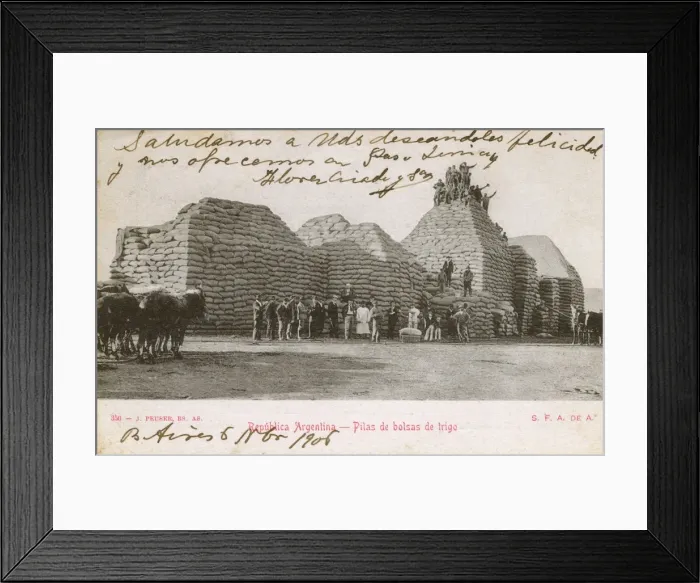 Saludamos a Uds deseandoles felicidad
y nos ofrecemos en
Flores y
350 — J. PEUSER, BS. AS.
República Argentina — Pilas de bolsas de trigo
S. F. A. DE A.
B. Aires 5 Nov. 1906